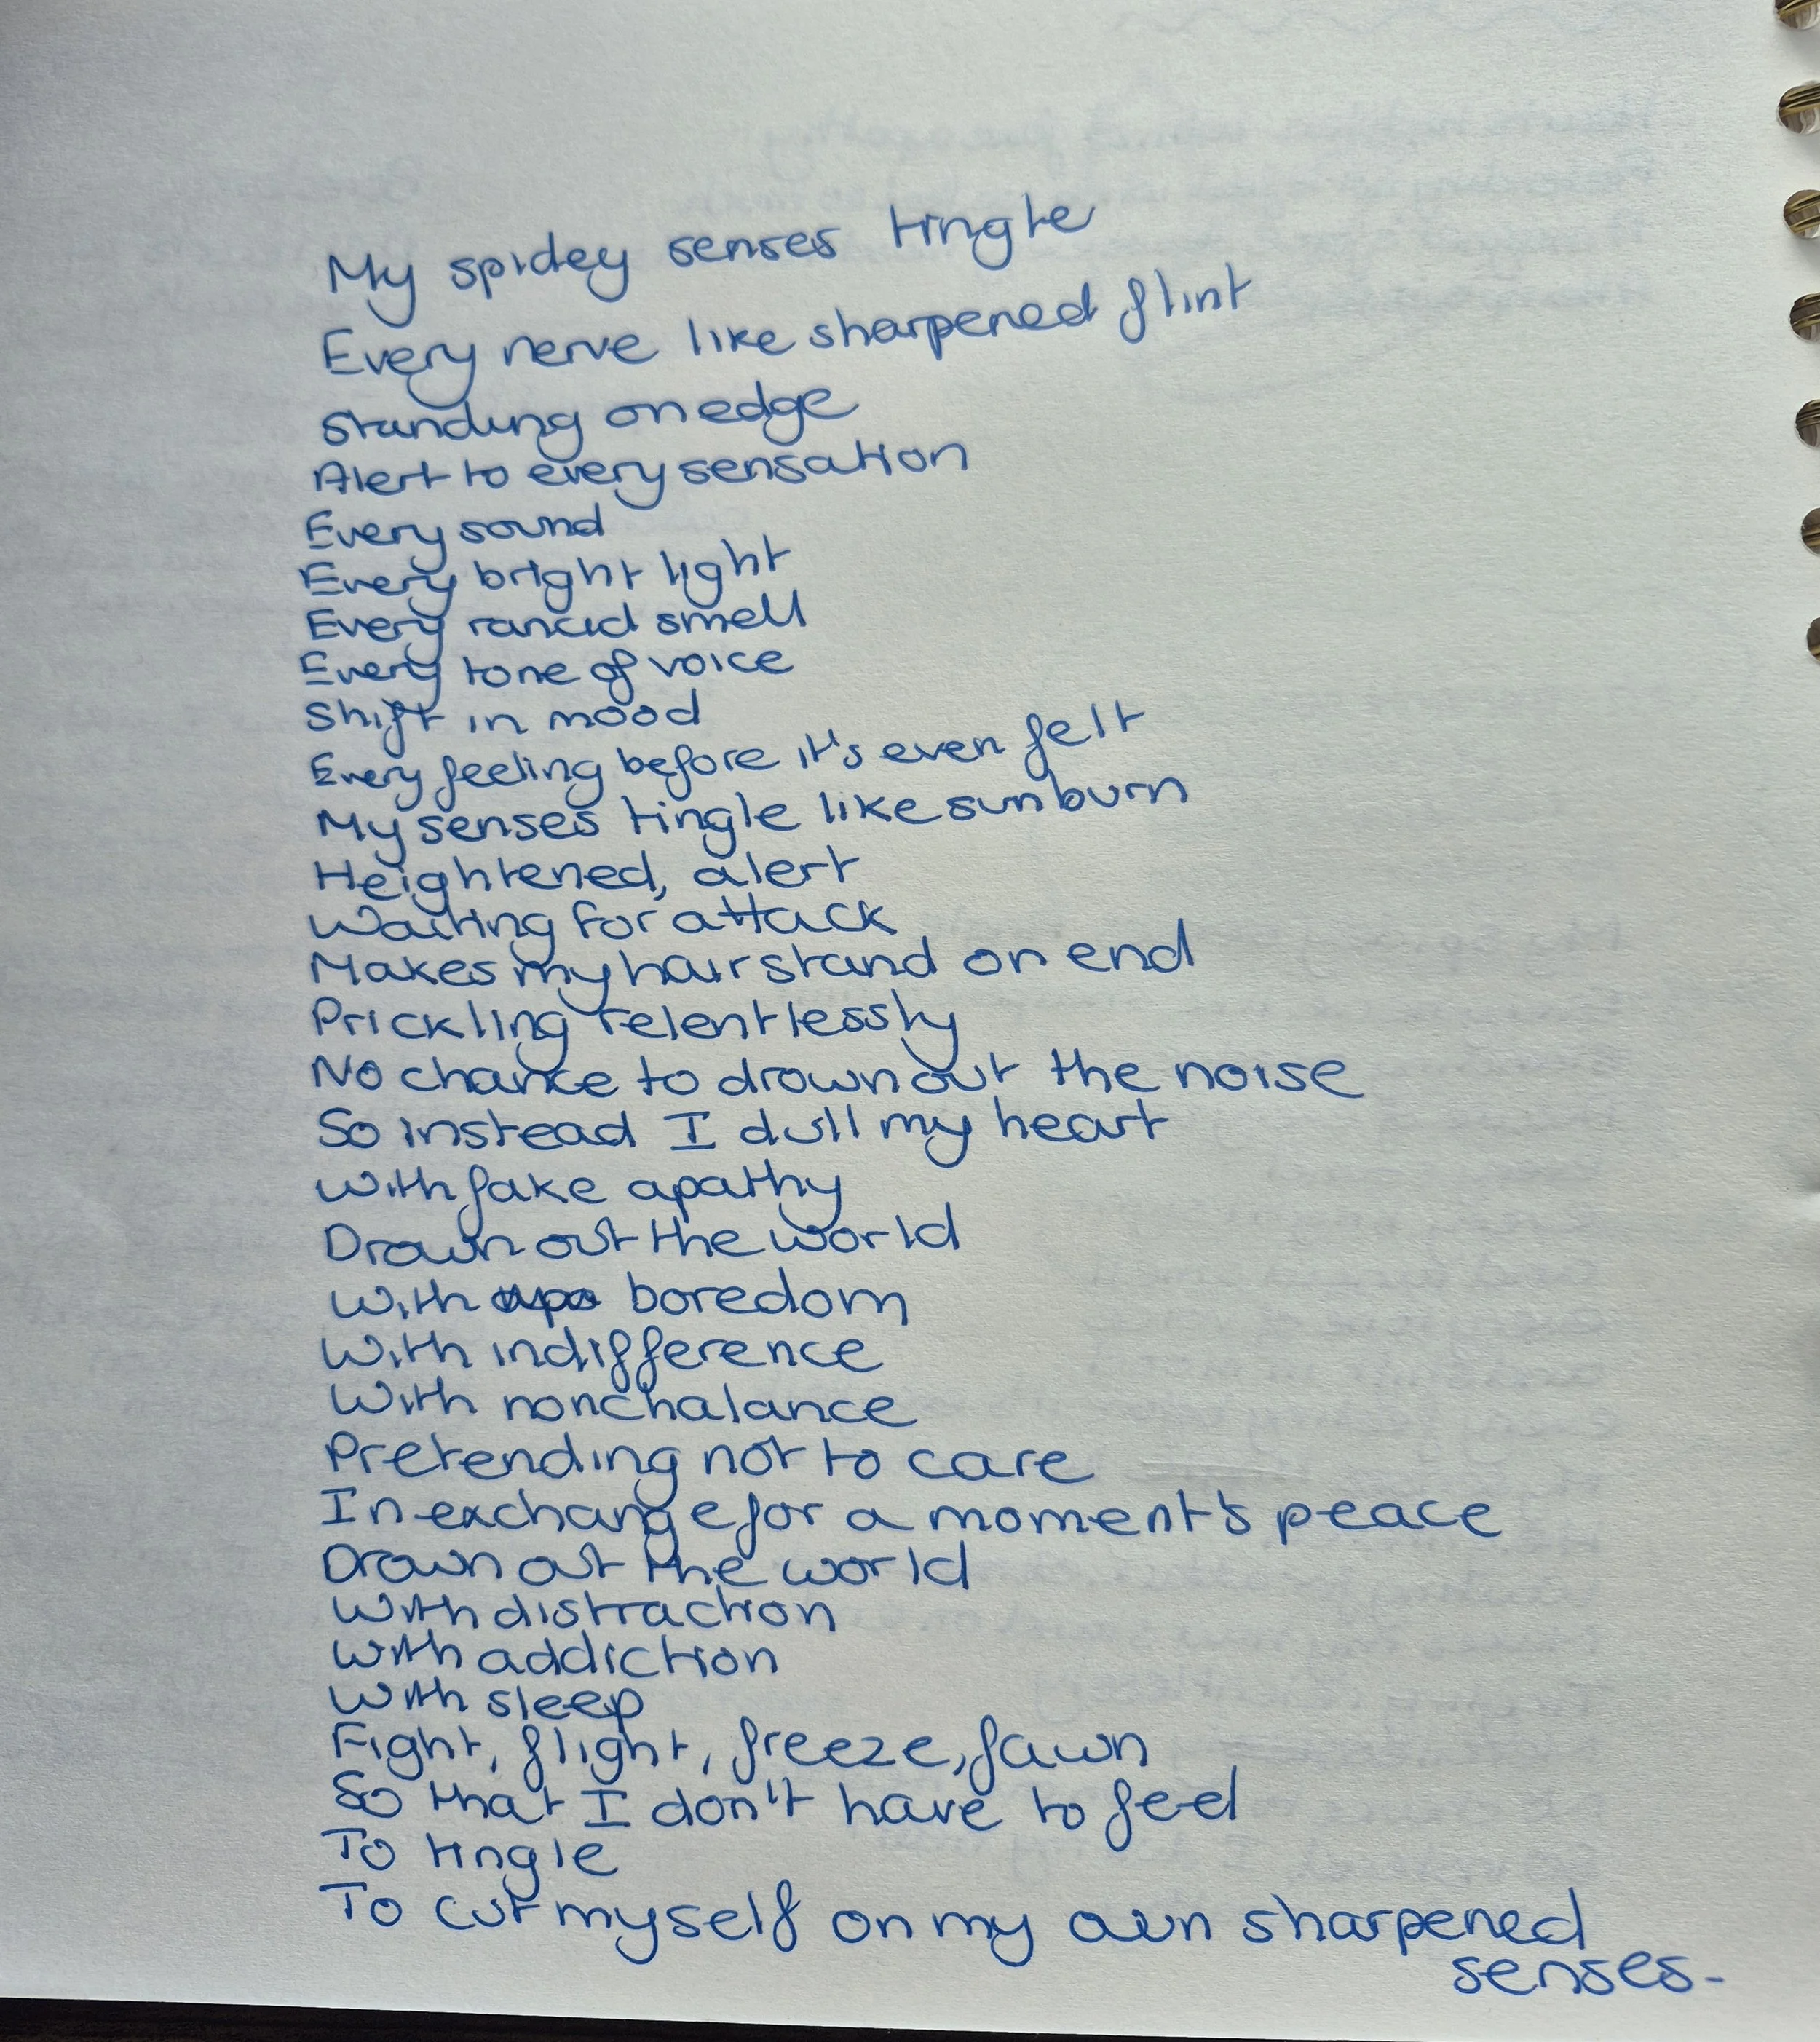 My spidey senses tingle
Every nerve like sharpened flint
Standing on edge
Alert to every sensation
Every sound
Every bright light
Every rancid smell
Every tone of voice
Shift in mood
Every feeling before it's even felt
My senses tingle like sunburn
Heightened, alert
Waiting for attack
Makes my hair stand on end
Prickling relentlessly
No chance to drown out the noise
So instead I dull my heart
With fake apathy
Drown out the world
With boredom
With indifference
With nonchalance
Pretending not to care
In exchange for a moment's peace
Drown out the world
With distraction
With addiction
With sleep
Fight, flight, freeze, fawn
So that I don't have to feel
To tingle
To cut myself on my own sharpened
senses-